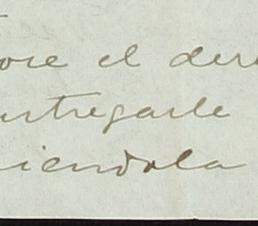 ore el der
ntregarle
iendola